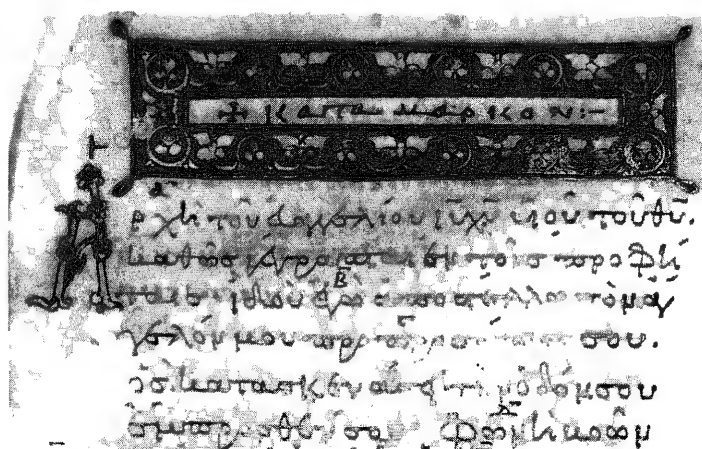 ✠ κατα μαρκον:–
Ἀρχὴ τοῦ εὐαγγελίου ἰῦ χῦ υἱοῦ τοῦ θῦ.
καθὼς γέγραπται ἐν τοῖς προφή
ταις ἰδοὺ ἐγὼ ἀποστέλλω τὸν ἄγ
γελόν μου πρὸ προσώπου σου.
ὃς κατασκευάσει τὴν ὁδόν σου
ἔμπροσθέν σου Φωνὴ βοῶν